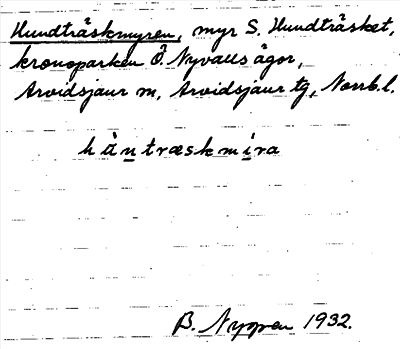 Hundträskmyren, myr S. Hundträsket,
kronoparken Ö. Nyvalls ägor,
Arvidsjaur m, Arvidsjaur tg, Norrb.l.
hàntræskmíra
B. Nygren 1932.